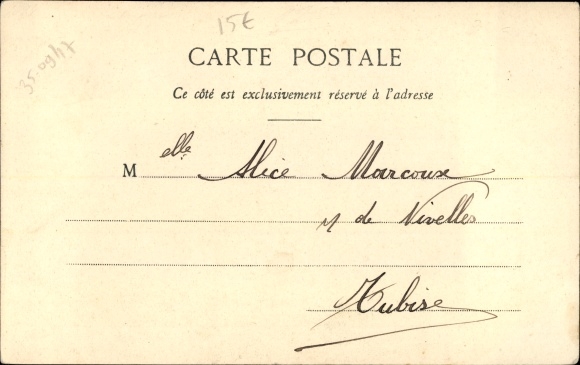 15€
35.09/47
CARTE POSTALE
Ce côté est exclusivement réservé à l'adresse
Melle Alice Marcoux
r de Nivelles
Tubise